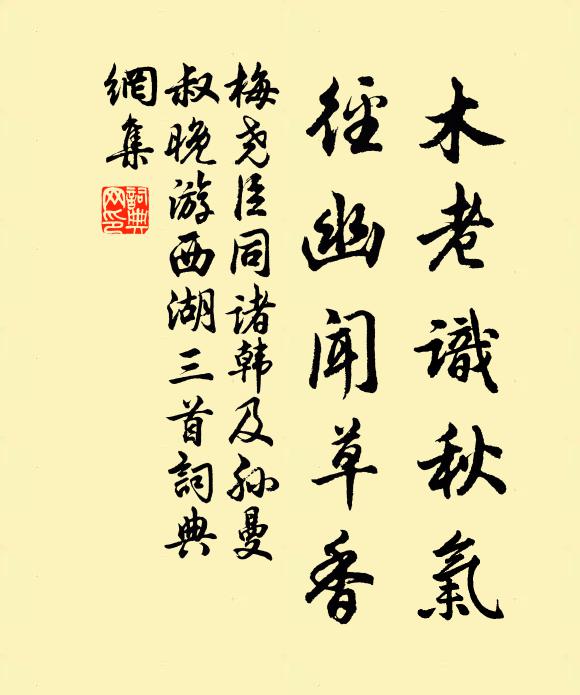 木老識秋氣
徑幽聞草香
梅尧臣同诸韩及孙曼
叔晚游西湖三首詞典
網集
詞典
网印